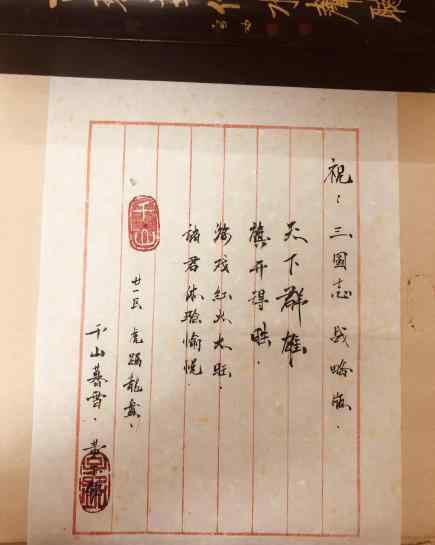 祝：三國志战略版.
天下群雄，
旗开得胜.
游戏红火大旺.
諸君体验愉悦.
千山
廿一区 虎踞龍盤.
千山暮雪.